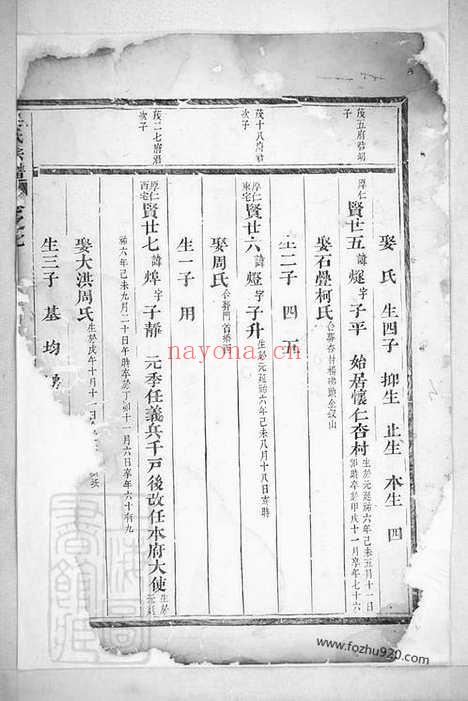 茂五府君嗣子
娶 氏 生四子 抑生 止生 本生 四
厚仁 賢廿五 諱燧 字子平 始居懷仁杏村
生於元延祐六年己未五月十一日
卒於甲戌十一月 享年七十六
娶石壘柯氏
茂十八府君次子
生二子 四 五
厚仁東宅 賢廿六 諱燈 字子升
生於元延祐六年己未八月十八日亥時
娶周氏
茂二七府君次子
生一子 用
厚仁西宅 賢廿七 諱焯 子靜 元季任義兵千戶後改任本府大使
生於元延
祐六年己未九月二十日午時卒於丁卯十一月六日享年六十有九
娶大洪周氏
生於庚午十月十一日
生三子 基 均
氏宗譜
nayona.cn
www.fozhu920.com